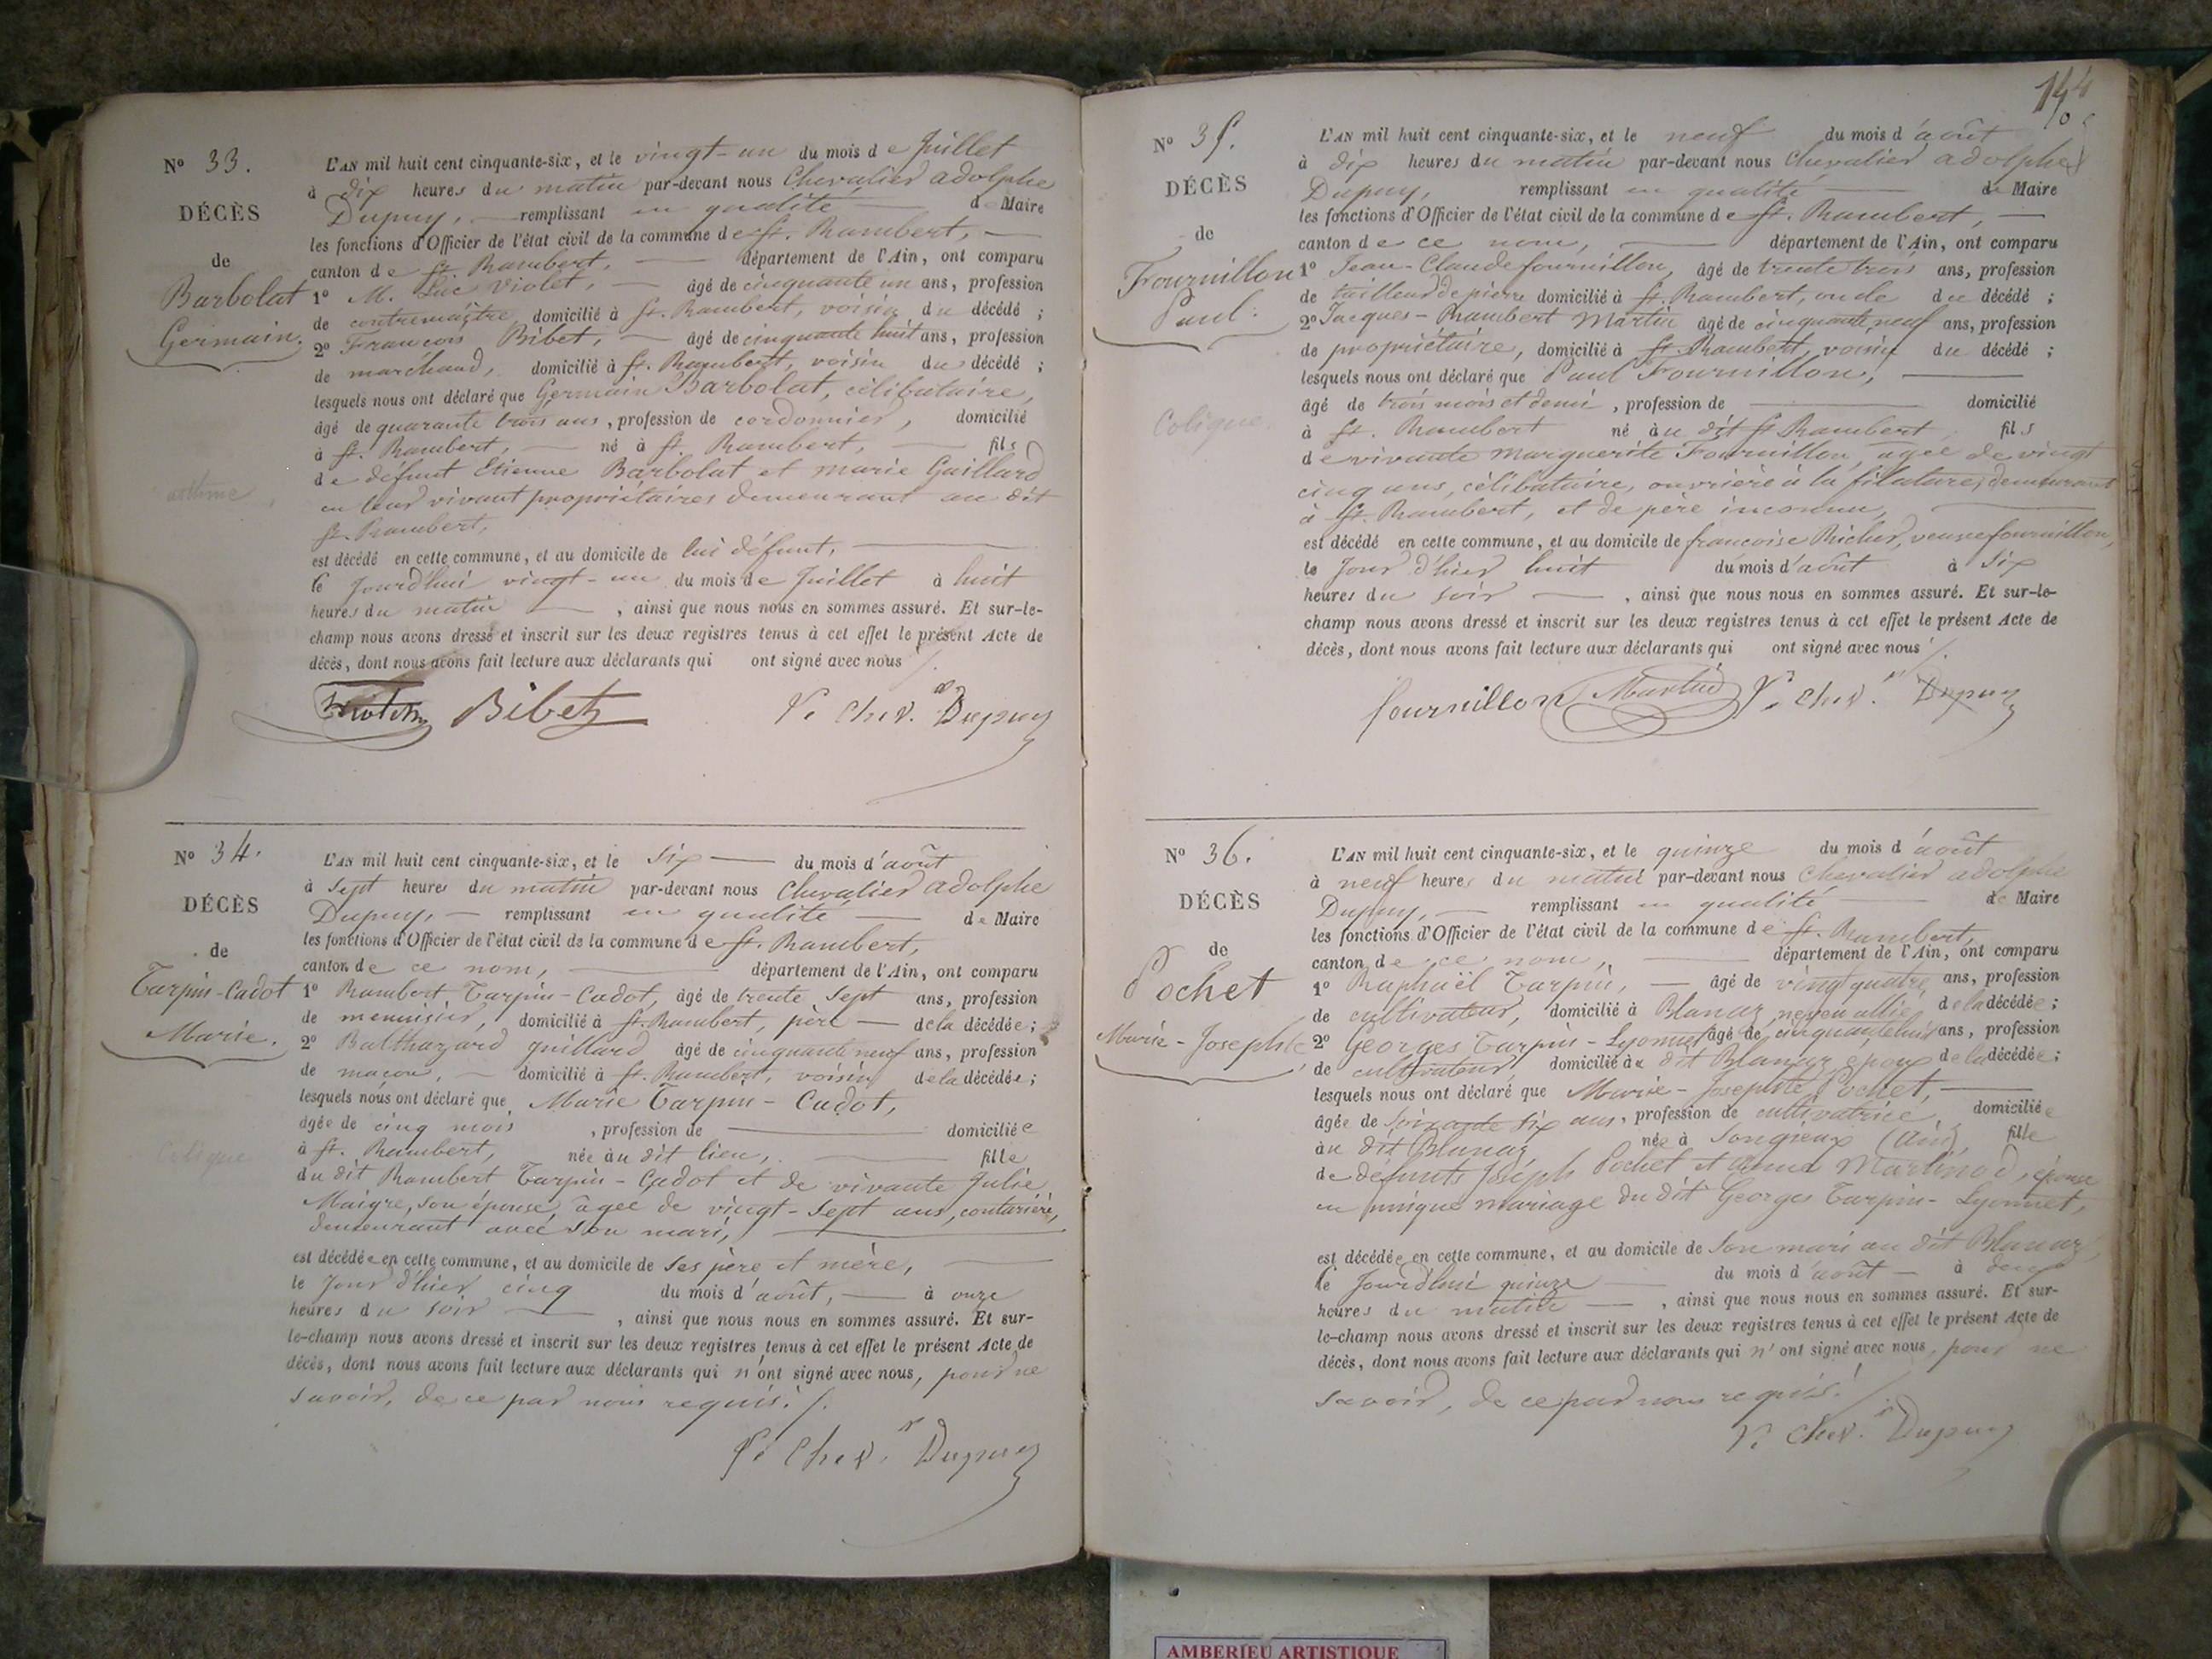 N° 33.
DÉCÈS
de
Barbolat
Germain.
asthme
L'AN mil huit cent cinquante-six, et le vingt-un du mois de Juillet
à dix heures du matin par-devant nous Chevalier adolphe
Dupuy, remplissant en qualité de Maire
les fonctions d'Officier de l'état civil de la commune de St. Rambert,
canton de St. Rambert, département de l'Ain, ont comparu
1° M. Luc Violet, âgé de cinquante un ans, profession
de contremaître domicilié à St. Rambert, voisin du décédé ;
2° François Bibet, âgé de cinquante huit ans, profession
de marchand, domicilié à St. Rambert, voisin du décédé ;
lesquels nous ont déclaré que Germain Barbolat, célibataire,
âgé de quarante trois ans, profession de cordonnier, domicilié
à St. Rambert, né à St. Rambert, fils
de défunt Etienne Barbolat et marie Gaillard
en leur vivant propriétaires demeurant au dit
St. Rambert,
est décédé en cette commune, et au domicile de lui défunt,
le Jourd'hui vingt-un du mois de Juillet à huit
heures du matin, ainsi que nous nous en sommes assuré. Et sur-le-
champ nous avons dressé et inscrit sur les deux registres tenus à cet effet le présent Acte de
décès, dont nous avons fait lecture aux déclarants qui ont signé avec nous /.
Bibet V. Chev.r Dupuy
N° 34.
DÉCÈS
de
Tarpin-Cadot
Marie.
Colique
L'AN mil huit cent cinquante-six, et le Six du mois d'août
à Sept heures du matin par-devant nous Chevalier adolphe
Dupuy, remplissant en qualité de Maire
les fonctions d'Officier de l'état civil de la commune de St. Rambert,
canton de ce nom, département de l'Ain, ont comparu
1° Rambert Tarpin-Cadot, âgé de trente Sept ans, profession
de menuisier, domicilié à St. Rambert, père de la décédée ;
2° Balthazard guillard âgé de cinquante neuf ans, profession
de maçon, domicilié à St. Rambert, voisin de la décédée ;
lesquels nous ont déclaré que Marie Tarpin-Cadot,
âgée de cinq mois, profession de domiciliée
à St. Rambert, née au dit lieu, fille
du dit Rambert Tarpin-Cadot et de vivante Julie
Maigre, son épouse, âgée de vingt-Sept ans, couturière,
demeurant avec son mari,
est décédée en cette commune, et au domicile de ses père et mère,
le Jour d'hier cinq du mois d'août, à onze
heures du soir, ainsi que nous nous en sommes assuré. Et sur-
le-champ nous avons dressé et inscrit sur les deux registres tenus à cet effet le présent Acte de
décès, dont nous avons fait lecture aux déclarants qui n'ont signé avec nous, pour ne
savoir, de ce par nous requis. /.
V. Chev.r Dupuy
144
N° 35.
DÉCÈS
de
Fournillon
Paul.
Colique.
L'AN mil huit cent cinquante-six, et le neuf du mois d'août
à dix heures du matin par-devant nous Chevalier adolphe
Dupuy, remplissant en qualité de Maire
les fonctions d'Officier de l'état civil de la commune de St. Rambert,
canton de ce nom, département de l'Ain, ont comparu
1° Jean-Claude fournillon, âgé de trente trois ans, profession
de tailleur de pierre domicilié à St. Rambert, oncle du décédé ;
2° Jacques-Rambert Martin âgé de cinquante neuf ans, profession
de propriétaire, domicilié à St. Rambert, voisin du décédé ;
lesquels nous ont déclaré que Paul Fournillon,
âgé de trois mois et demi, profession de domicilié
à St. Rambert né au dit St Rambert, fils
de vivante Marguerite Fournillon, agée de vingt
cinq ans, célibataire, ouvrière à la filature, demeurant
à St. Rambert, et de père inconnu,
est décédé en cette commune, et au domicile de françoise Richer, veuve fournillon,
le Jour d'hier huit du mois d'août à Six
heures du soir, ainsi que nous nous en sommes assuré. Et sur-le-
champ nous avons dressé et inscrit sur les deux registres tenus à cet effet le présent Acte de
décès, dont nous avons fait lecture aux déclarants qui ont signé avec nous /.
fournillon Martin V. Chev.r Dupuy
N° 36.
DÉCÈS
de
Pochet
Marie-Josephte,
L'AN mil huit cent cinquante-six, et le quinze du mois d'août
à neuf heures du matin par-devant nous Chevalier adolphe
Dupuy, remplissant en qualité de Maire
les fonctions d'Officier de l'état civil de la commune de St. Rambert,
canton de ce nom, département de l'Ain, ont comparu
1° Raphaël Tarpin, âgé de vingt quatre ans, profession
de cultivateur, domicilié à Blanaz, neveu allié de la décédée ;
2° Georges Tarpin-Lyonnet âgé de cinquante huit ans, profession
de cultivateur, domicilié au dit Blanaz, époux de la décédée ;
lesquels nous ont déclaré que Marie-Josephte Pochet,
âgée de Soixante six ans, profession de cultivatrice, domiciliée
au dit Blanaz, née à Songieux (Ain), fille
de défunts Joseph Pochet et Anne Martinod, épouse
en unique mariage du dit Georges Tarpin-Lyonnet,
est décédée en cette commune, et au domicile de Son mari au dit Blanaz,
le Jourd'hui quinze du mois d'août à deux
heures du matin, ainsi que nous nous en sommes assuré. Et sur-
le-champ nous avons dressé et inscrit sur les deux registres tenus à cet effet le présent Acte de
décès, dont nous avons fait lecture aux déclarants qui n'ont signé avec nous, pour ne
savoir, de ce par nous requis. /.
V. Chev.r Dupuy
AMBERIEU ARTISTIQUE